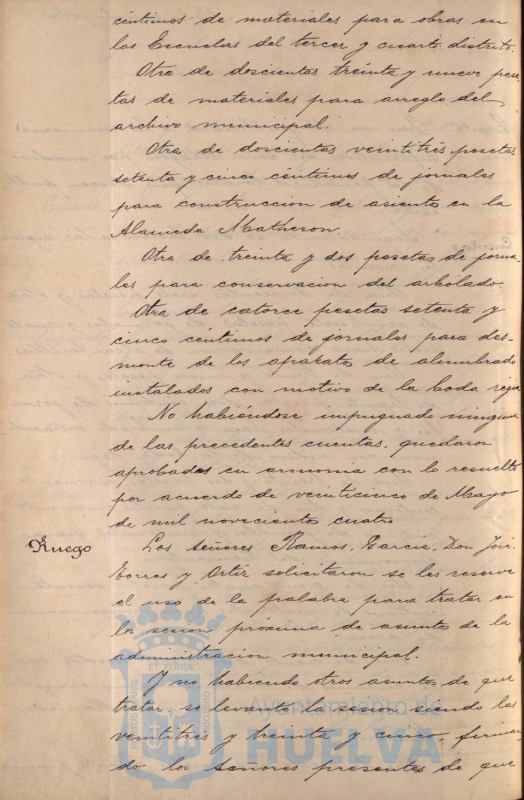 céntimos de materiales para obras en
las Escuelas del tercer y cuarto distrito.
Otra de doscientas treinta y nueve pese
tas de materiales para arreglo del
archivo municipal.
Otra de doscientas veintitrés pesetas
setenta y cinco céntimos de jornales
para construccion de asientos en la
Alameda Matheson.
Otra de treinta y dos pesetas de jorna-
les para conservacion del arbolado.
Otra de catorce pesetas setenta y
cinco céntimos de jornales para des-
monte de los aparatos de alumbrado
instalados con motivo de la boda regia
No habiéndose impugnado ninguna
de las precedentes cuentas, quedaron
aprobadas en armonia con lo resuelto
por acuerdo de veinticinco de Mayo
de mil novecientos cuatro
Ruego
Los Señores Ramos, Garcia, Don José
Torres y Ortiz solicitaron se les reserve
el uso de la palabra para tratar en
la sesion próxima de asuntos de la
administracion municipal.
Y no habiendo otros asuntos de que
tratar, se levantó la sesion siendo las
veintitres y treinta y cinco, firman
do los señores presentes de que
Ayuntamiento de
HUELVA